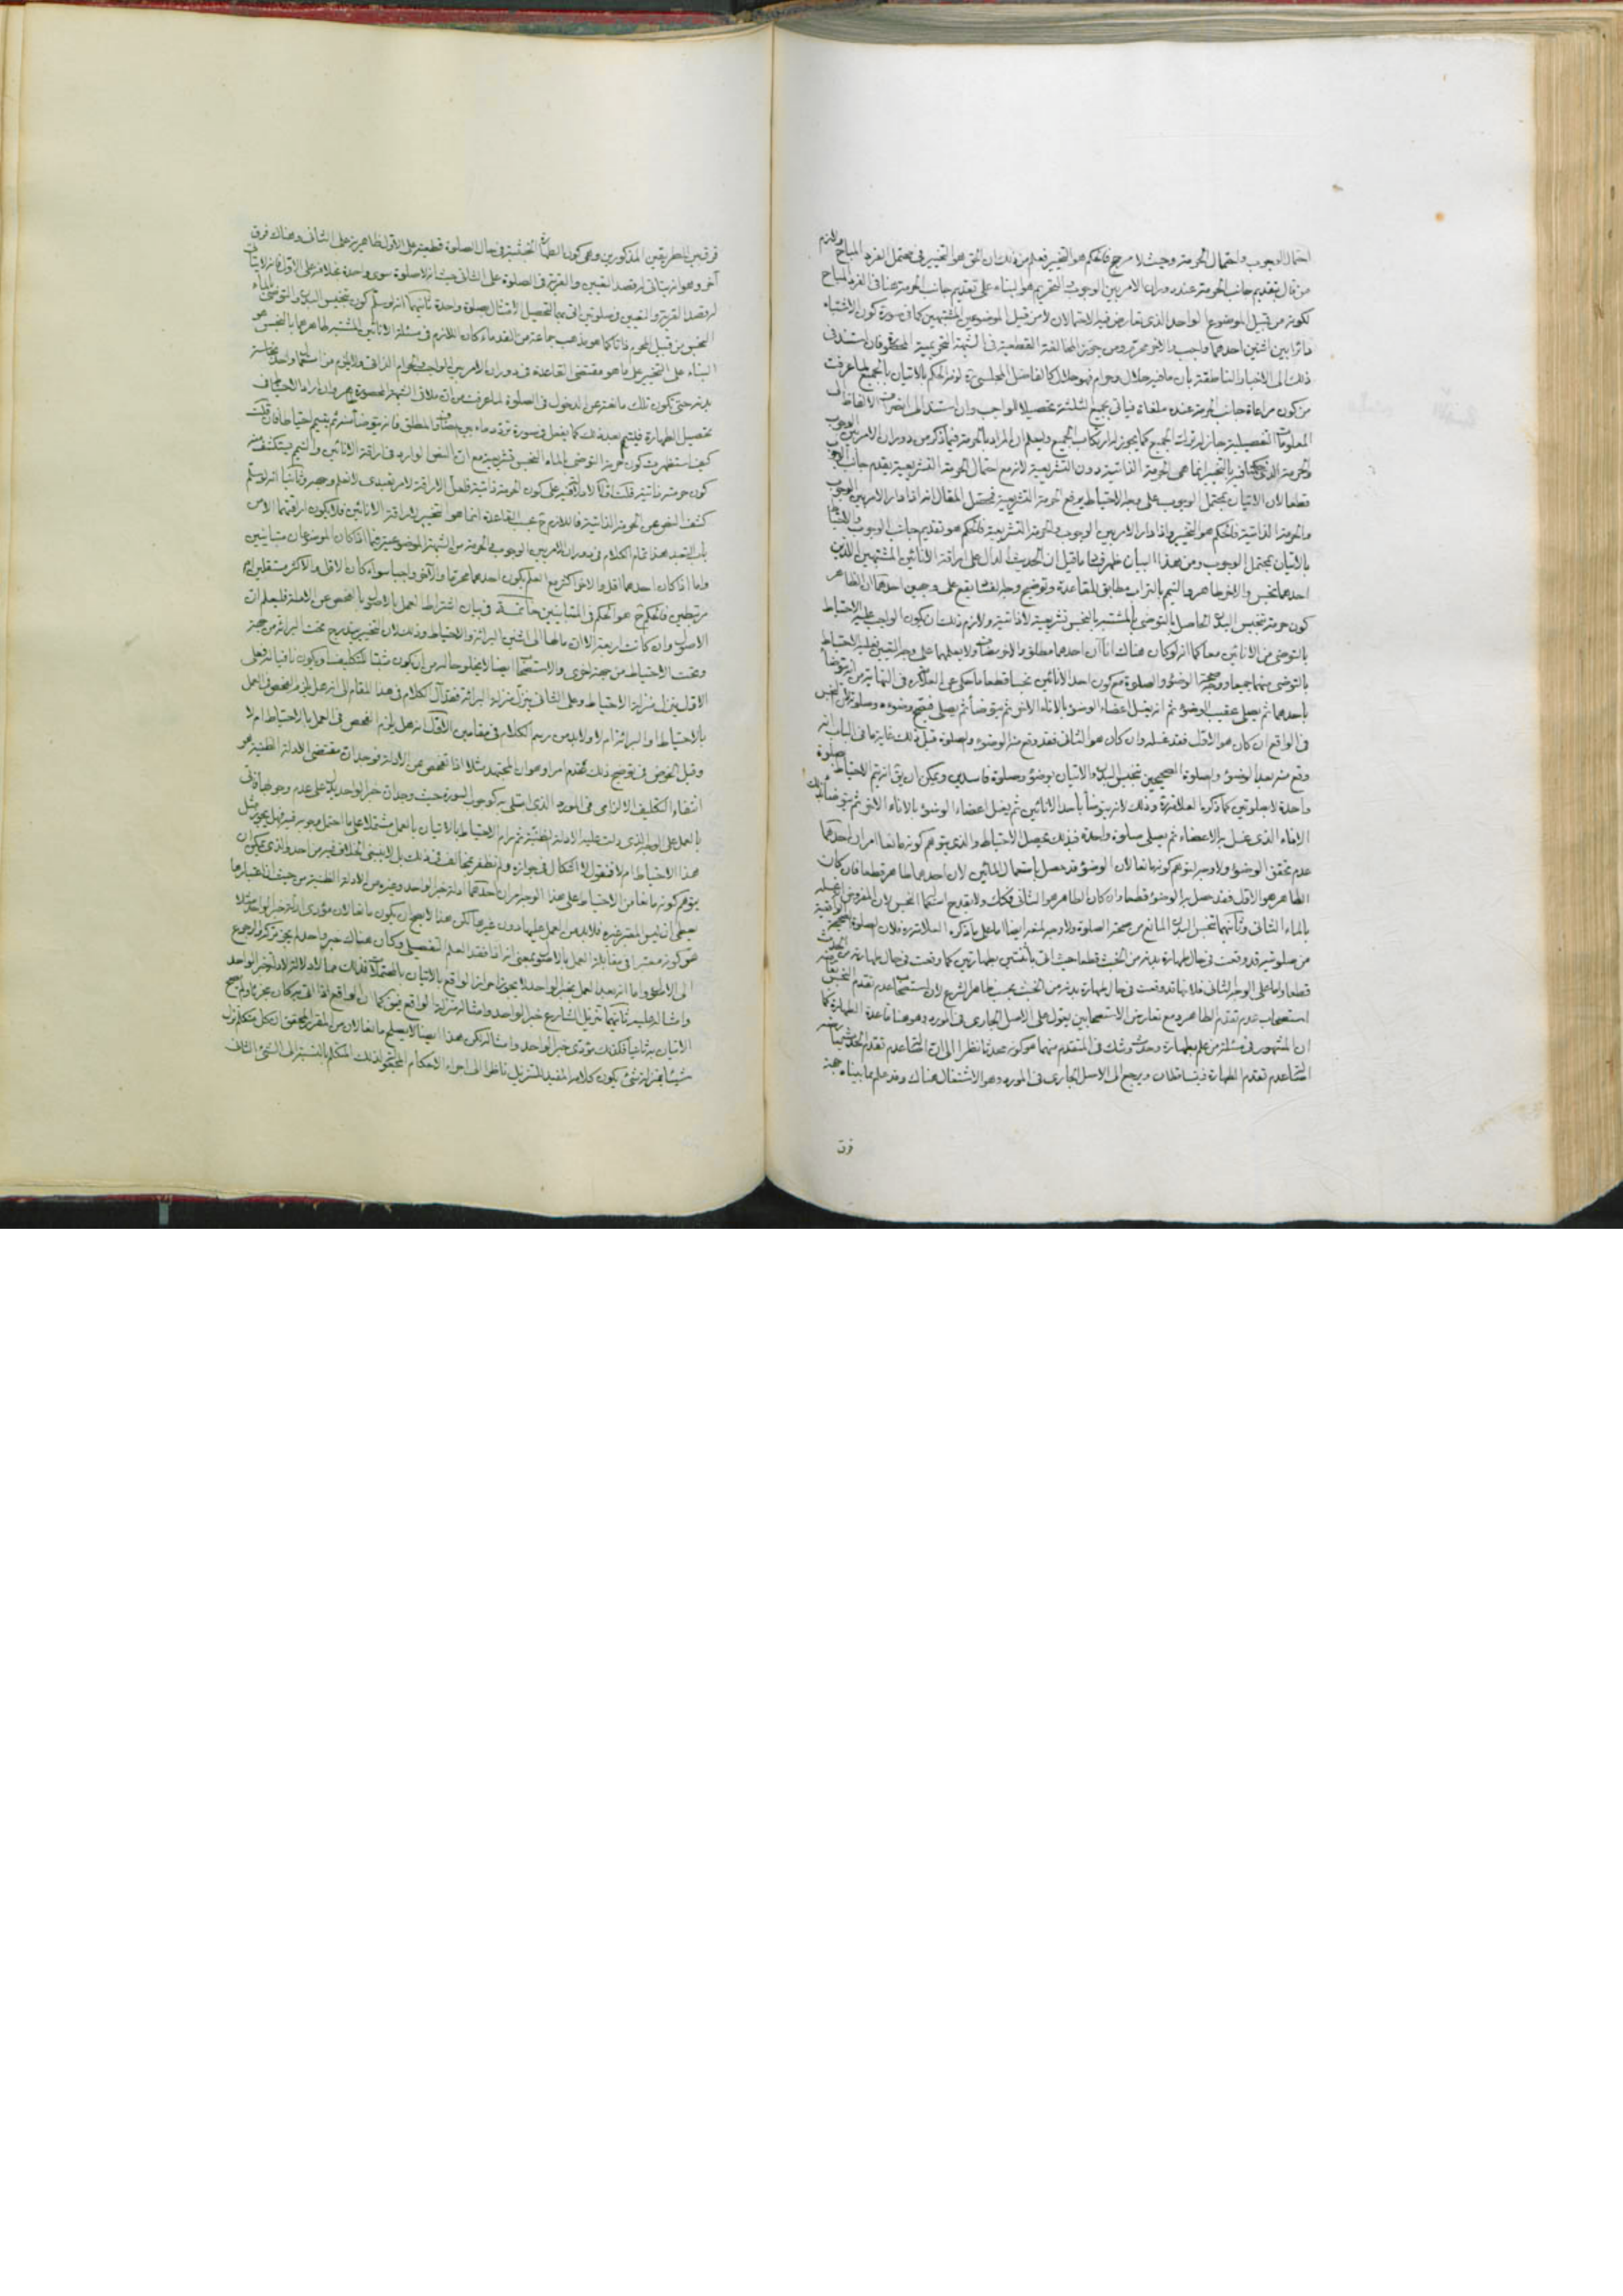 احتمال الوجوب واحتمال الحرمة وحيث لا مرجح فالحكم هو التخيير فعلم من ذلك ان الحق هو التخيير في محتمل الفرد المباح
من قال بتقديم جانب الحرمة عند دوران الامر بين الوجوب والتحريم هو البناء على تقديم جانب الحرمة هنا في الفرد المباح
لكونه من قبيل الموضوع الواحد الذي تعارض فيه الاحتمالان لا من قبيل الموضوعين المشتبهين كما في صورة كون الاشتباه
دائرا بين اثنين احدهما واجب والاخر محرم ومن جوز المخالفة القطعية في الشبهة التحريمية المحصورة فان استند في
ذلك الى الاخبار الناطقة بان ما فيه حلال وحرام فهو حلال كالفاضل المجلسي ره لزمه الحكم بالاتيان بالجميع لما عرفت
من كون مراعاة جانب الحرمة عنده ملغاة فيأتي بجميع الثلثة تحصيلا للواجب وان استند الى انصراف الالفاظ الى
المعلومات التفصيلية جاز له ترك الجميع كما يجوز له ارتكاب الجميع وليعلم ان المراد بالحرمة فيما ذكر من دوران الامر بين الوجوب
والحرمة الذي حكمنا فيه بالتخيير انما هي الحرمة الذاتية دون التشريعية لان مع احتمال الحرمة التشريعية يقدم جانب الوجوب
قطعا لان الاتيان بمحتمل الوجوب على وجه الاحتياط يرفع الحرمة التشريعية فمحصل المقال انه اذا دار الامر بين الوجوب
والحرمة الذاتية فالحكم هو التخيير واذا دار الامر بين الوجوب والحرمة التشريعية فالحكم هو تقديم جانب الوجوب والاحتياط
بالاتيان بمحتمل الوجوب ومن هذا البيان ظهر فساد ما قيل ان الحديث الدال على اراقة الانائين المشتبهين اللذين
احدهما نجس والاخر طاهر والتيمم بالتراب مطابق للقاعدة وتوضيح وجه الفساد يقع على وجهين احدهما ان الظاهر
كون حرمة تنجيس البدن الحاصل بالتوضي بالمشتبه بالنجس تشريعية لا ذاتية ولازم ذلك ان يكون الواجب عليه الاحتياط
بالتوضي من الانائين معا كما انه لو كان هناك اناءان احدهما مطلق والاخر مضاف ولا يعلمهما على وجه التعيين فعليه الاحتياط
بالتوضي منهما جميعا ووجه صحة الوضوء والصلوة مع كون احد الانائين نجسا قطعا ما حكى عن العلامة ره في النهاية من انه يتوضأ
باحدهما ثم يصلي عقيب الوضوء ثم انه يغسل اعضاء الوضوء بالاناء الاخر ثم يتوضأ ثم يصلي فيصح وضوءه وصلوته لان النجس
في الواقع ان كان هو الاول فقد غسله وان كان هو الثاني فقد وقع منه الوضوء والصلوة قبل ذلك غاية ما في الباب انه
وقع منه بعد الوضوء والصلوة الصحيحين تنجيس البدن والاتيان بوضوء وصلوة فاسدين ويمكن ان يق انه يتم الاحتياط بصلوة
واحدة لا بصلوتين كما ذكره العلامة ره وذلك لانه يتوضأ باحد الانائين ثم يغسل اعضاء الوضوء بالاناء الاخر ثم يتوضأ بذلك
الاناء الذي غسل به الاعضاء ثم يصلي صلوة واحدة فبذلك يحصل الاحتياط والذي يتوهم كونه مانعا امران احدهما
عدم تحقق الوضوء ولا وجه لتوهم كونه مانعا لان الوضوء قد حصل باستعمال المائين لان احدهما طاهر قطعا فان كان
الطاهر هو الاول فقد حصل به الوضوء قطعا وان كان الطاهر هو الثاني فكك ولا يقدح استعمال النجس لان المفروض انه غسله
بالماء الثاني وثانيهما تنجس البدن المانع من صحة الصلوة ولا وجه لمنعه ايضا اما على ما ذكره العلامة ره فلان الصلوة الصحيحة الواقعية
من صلوتيه قد وقعت في حال طهارة بدنه من الخبث قطعا حيث اتى باثنتين بطهارتين كما وقعت في حال طهارته من الحدث
قطعا واما على الوجه الثاني فلانها قد وقعت في حال طهارة بدنه من الخبث بحسب ظاهر الشرع لان استصحاب عدم تقدم النجس
استصحاب عدم تقدم الطاهر ومع تعارض الاستصحابين يعول على الاصل الجاري في المورد وهو هنا قاعدة الطهارة كما
ان المشهور في مسئلة من علم بطهارة وحدث وشك في المتقدم منهما هو كونه محدثا نظرا الى ان استصحاب عدم تقدم الحدث
استصحاب عدم تقدم الطهارة فيتساقطان ويرجع الى الاصل الجاري في المورد وهو الاشتغال هناك وقد علم مما بيناه
فرق
فرق بين الطريقين المذكورين وهي كون الطهارة الخبثية في حال الصلوة قطعية على الاول ظاهرية على الثاني وهناك فرق
آخر وهو انه يتأتى له قصد التعيين والقربة في الصلوة على الثاني حيث انه لا صلوة سوى واحدة بخلافه على الاول فانه لا يتأتى
له قصد القربة والتعيين في صلوتين اتى بهما لتحصيل الامتثال بصلوة واحدة ثانيهما انه لو سلم كون تنجيس البدن والتوضي بالماء
النجس من قبيل المحرم ذاتا كما هو مذهب جماعة من القدماء كان اللازم في مسئلة الانائين المشتبه طاهرهما بالنجس هو
البناء على التخيير على ما هو مقتضى القاعدة في دوران الامر بين الواجب والحرام الذاتي ولا يلزم من استعمال واحد نجاسة
بدنه حتى تكون تلك مانعة عن الدخول في الصلوة لما عرفت من ان ملاقي الشبهة المحصورة طاهر وان اراد الاحتياط في
تحصيل الطهارة فليتيمم بعد ذلك كما يفعل في صورة تردد ماء بين المضاف والمطلق فانه يتوضأ منه ثم يتيمم احتياطا فان قلت
كيف استظهرت كون حرمة التوضي بالماء النجس تشريعية مع ان النص الوارد في اراقة الانائين والتيمم يكشف منه
كون حرمته ذاتية قلت اولا لا دلالة فيه على كون الحرمة ذاتية فلعل الاراقة لامر تعبدي لا نعلم وجهه وثانيا انه لو سلم
كشف النص عن الحرمة الذاتية فاللازم ح بحسب القاعدة انما هو التخيير لا اراقة الانائين فلا يكون اراقتهما الا من
باب التعبد هذا تمام الكلام في دوران الامر بين الوجوب والحرمة من الشبهة الموضوعية فيما اذا كان الموضوعان متباينين
واما اذا كان احدهما اقل والاخر اكثر مع العلم بكون احدهما محرما والآخر واجبا سواء كان الاقل والاكثر مستقلين ام
مرتبطين فالحكم ح هو الحكم في المتباينين خاتمة في بيان اشتراط العمل بالاصول بالفحص عن الادلة فليعلم ان
الاصول وان كانت اربعة الا ان مالها الى اثنين البرائة والاحتياط وذلك لان التخيير يندرج تحت البرائة من جهة
وتحت الاحتياط من جهة اخرى والاستصحاب ايضا لا يخلو حاله من ان يكون مثبتا للتكليف او يكون نافيا له فعلى
الاول ينزل منزلة الاحتياط وعلى الثاني ينزل منزلة البرائة فمآل الكلام في هذا المقام الى انه هل يلزم الفحص في العمل
بالاحتياط او البرائة ام لا ولا بد من رسم الكلام في مقامين الاول انه هل يلزم الفحص في العمل بالاحتياط ام لا
وقبل الخوض في توضيح ذلك نقدم امرا وهو ان المجتهد مثلا اذا تفحص عن الادلة فوجد ان مقتضى الادلة الظنية هو
انتفاء التكليف الالزامي في المورد الذي ابتلى به كوجوب السورة حيث وجد ان خبر الواحد يدل على عدم وجوبها فاتى
بالعمل على الوجه الذي دلت عليه الادلة الظنية ثم رام الاحتياط بالاتيان بالعمل مشتملا على ما احتمل وجوبه فيه فهل يجوز مثل
هذا الاحتياط ام لا فنقول لا اشكال في جوازه ولم نظفر بمخالف في ذلك بل لا ينبغي الخلاف فيه من احد والذي يمكن ان
يتوهم كونه مانعا من الاحتياط على هذا الوجه امران احدهما ادلة خبر الواحد وغيره من الادلة الظنية من حيث ان اعتبارها
يعطي ان ليس المعتبر غيره فلا بد من العمل عليها دون غيرها لكن هذا لا يصح ان يكون مانعا لان مؤدى ادلة خبر الواحد مثلا
هو كونه معتبرا في مقابلة العمل بالاصول بمعنى انه اذا فقد العلم التفصيلي وكان هناك خبر واحد لم يجز تركه والرجوع
الى الاصل واما انه بعد العمل بخبر الواحد لا يجوز احراز الواقع بالاتيان بالمحتملات فذلك مما لا دلالة لادلة خبر الواحد
وامثاله عليه ثانيهما تنزيل الشارع خبر الواحد وامثاله منزلة الواقع فيق كما ان الواقع اذا اتى به كان مجزيا ولم يصح
الاتيان به ثانيا فكذلك مؤدى خبر الواحد وامثاله لكن هذا ايضا لا يصلح مانعا لان من المقرر المحقق ان كل متكلم نزل
شيئا بمنزلة شئ يكون كلامه المفيد للتنزيل ناظرا الى اجراء الاحكام المجعولة لذلك المتكلم بالنسبة الى الشئ الثاني